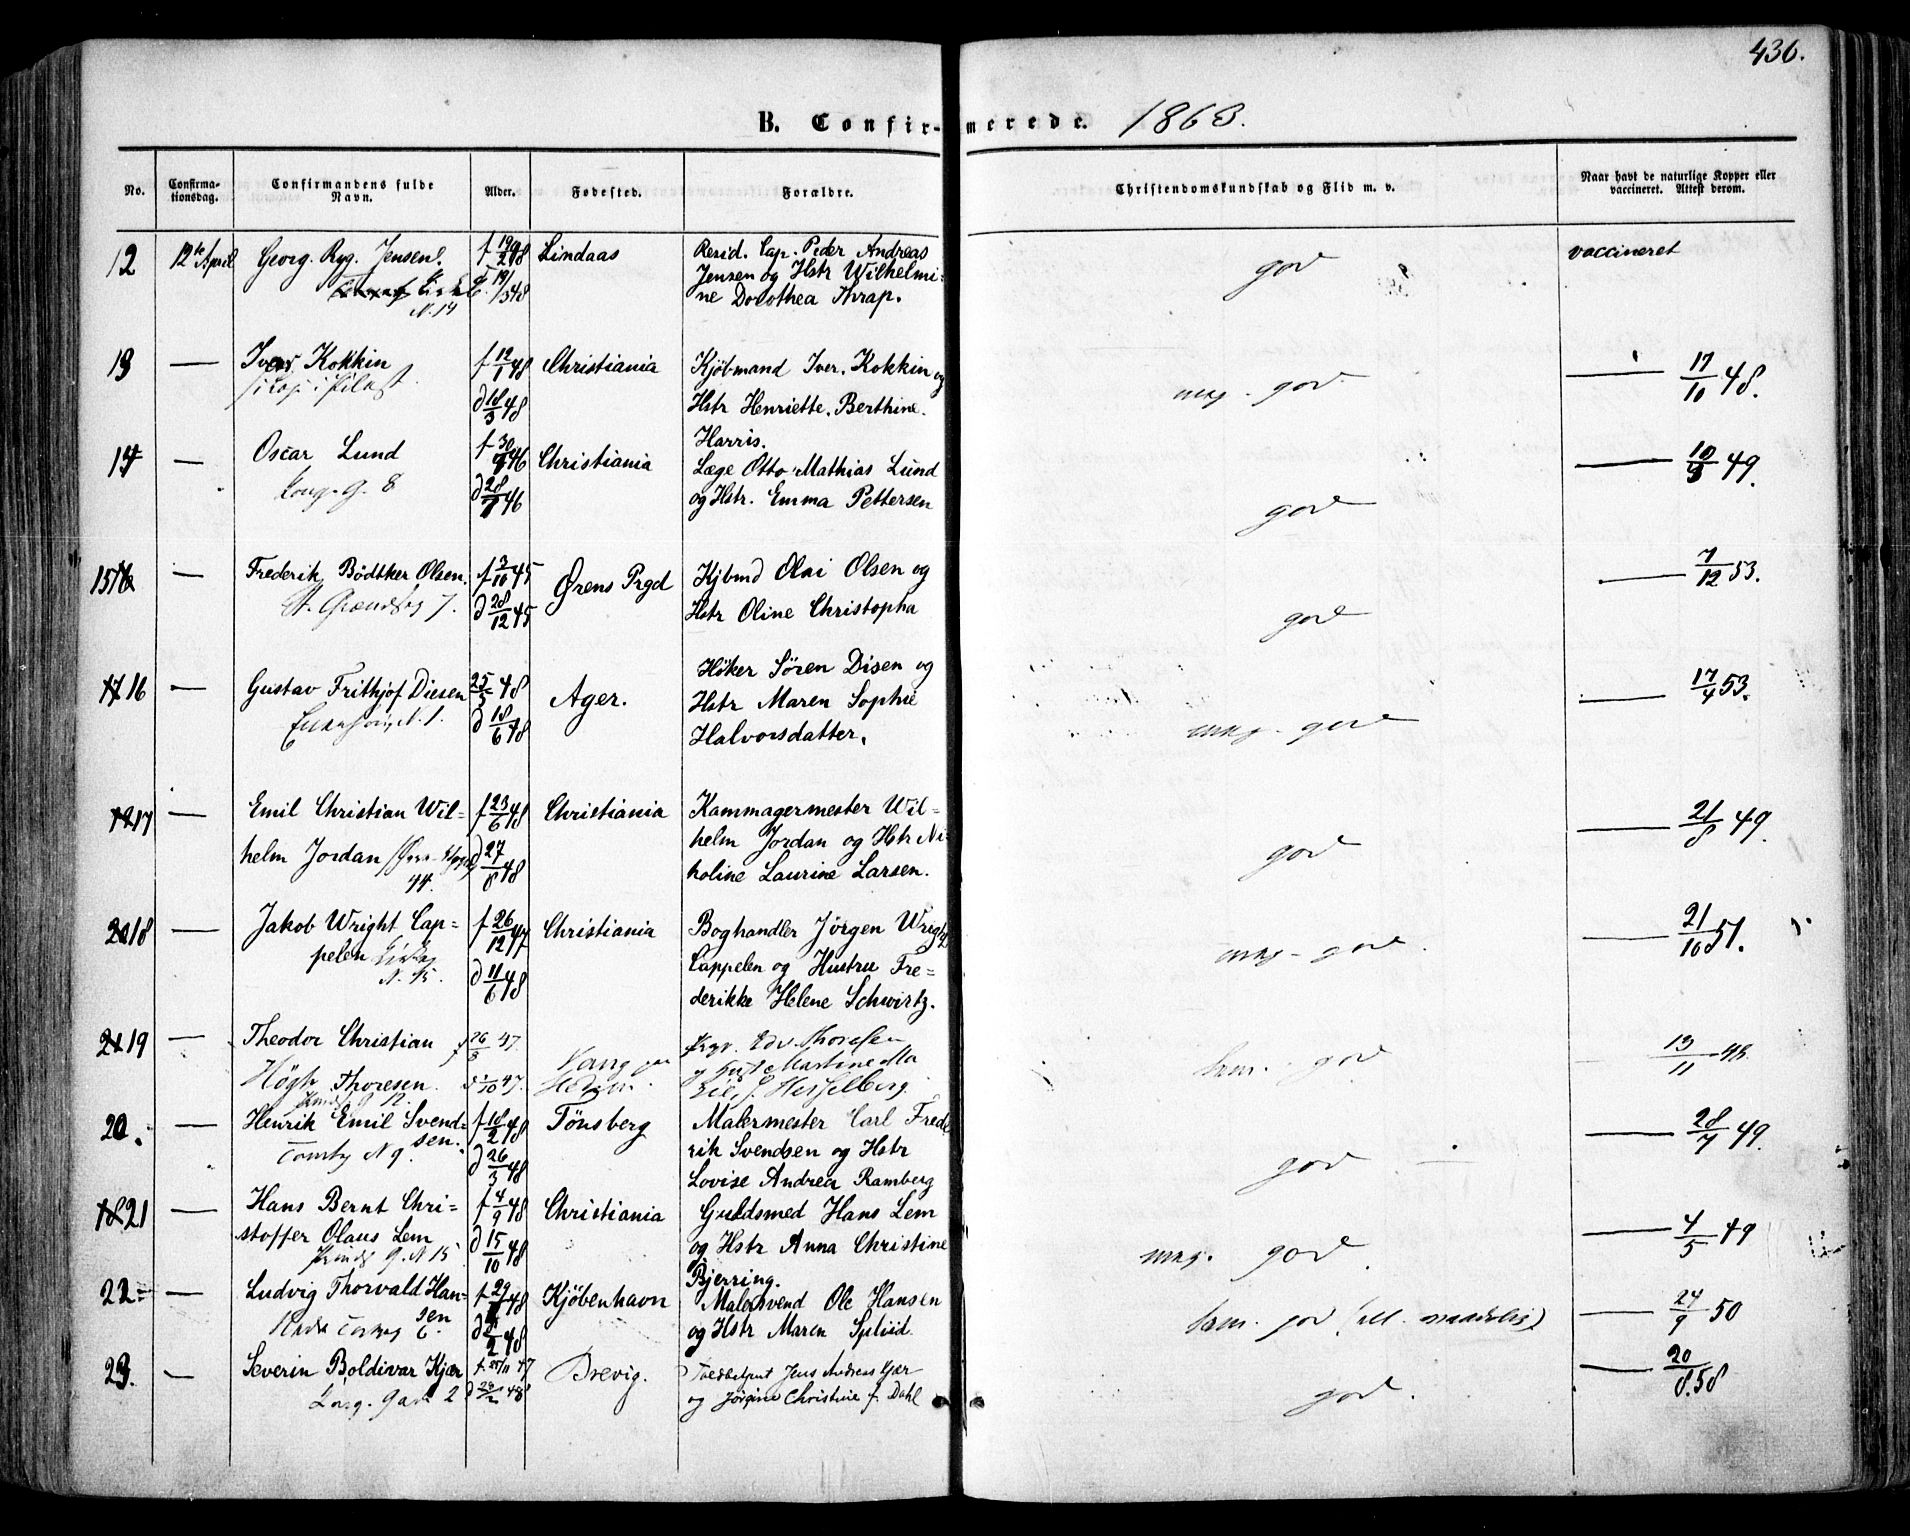 436.
B. Confirmerede. 1863.
No. Confirmationsdag. Confirmandens fulde Navn. Alder. Fødested. Forældre. Christendomskundskab og Flid m. v. Naar havt de naturlige Kopper eller vaccineret. Attest derom.
12 12te April Georg. Ryg. Jensen. f 19/2 48 Lindaas Resid. Cap. Peder Andreas
Jensen og Hstr Wilhelmi=
N. 14 ne Dorothea Thrap.
god vaccineret
13 — Iver Kokkin f 12/1 48 Christiania Kjøbmand Iver. Kokkin og
d 18/3 48 Hstr Henriette. Berthine.
Harris.
meg. god — 17/10 48.
14 — Oscar Lund f 30/ 46 Christiania Læge Otto Mathias Lund
Kong. G. 8 d 28/ 46 og Hstr. Emma Pettersen
god — 10/3 49.
15 — Frederik Bödtker Olsen. f 3/10 45 Ørens Prgd Kjbmd Olai Olsen og
7. d 28/12 45 Hstr Oline Christopha
god — 7/12 53.
16 — Gustav Frithjof Diesen 25/3 48 Ager. Höker Sören Disen og
N. 1. d 18/6 48 Hstr Maren Sophie
Halvorsdatter.
meg. god — 17/4 53.
17 — Emil Christian Wil= f 23/6 48 Christiania Kammagermester Wil=
helm Jordan d 27/8 48 helm Jordan og Hstr Ni=
44. koline Laurine Larsen.
god — 21/8 49.
18 — Jakob Wright Cap= f 26/12 47 Christiania Boghandler Jörgen Wright
pelen d 11/6 48 Cappelen og Hustru Fre=
N. 15. derikke Helene Schwirtz.
meg. god — 21/10 51.
19 — Theodor Christian f 26/3 47. Vang paa Prgr. Edv Thoresen
Högh Thoresen. 47. Hedem. og Hust. Martine Ma
f. Hesselberg.
god 13/11 48.
20. — Henrik Emil Svend= f 18/2 48 Tönsberg Malermester Carl Frede
sen. N 9. d 26/3 48 rik Svendsen og Hstr
Lovise Andrea Ramberg
god — 28/7 49.
21 — Hans Bernt Chri= f 4/9 48 Christiania Guldsmed Hans Lem
stoffer Olaus Lem d 15/10 48 og Hstr Anna Christine
G. N 15 Bjerring.
meg. god — 4/5 49
22 — Ludvig Thorvald Han= f 29/ 48 Kjöbenhavn Malersvend Ole Hansen
sen 6. d /2 48 og Hstr Maren Splüid.
god — 24/9 50
23. — Severin Boldivar Kjær f. 25/11 47 Brevig. Toldbetjent Jens Andreas Kjær
Kong. Gade 2 48 og Jörgine Christine f. Dahl
god. — 20/8. 58